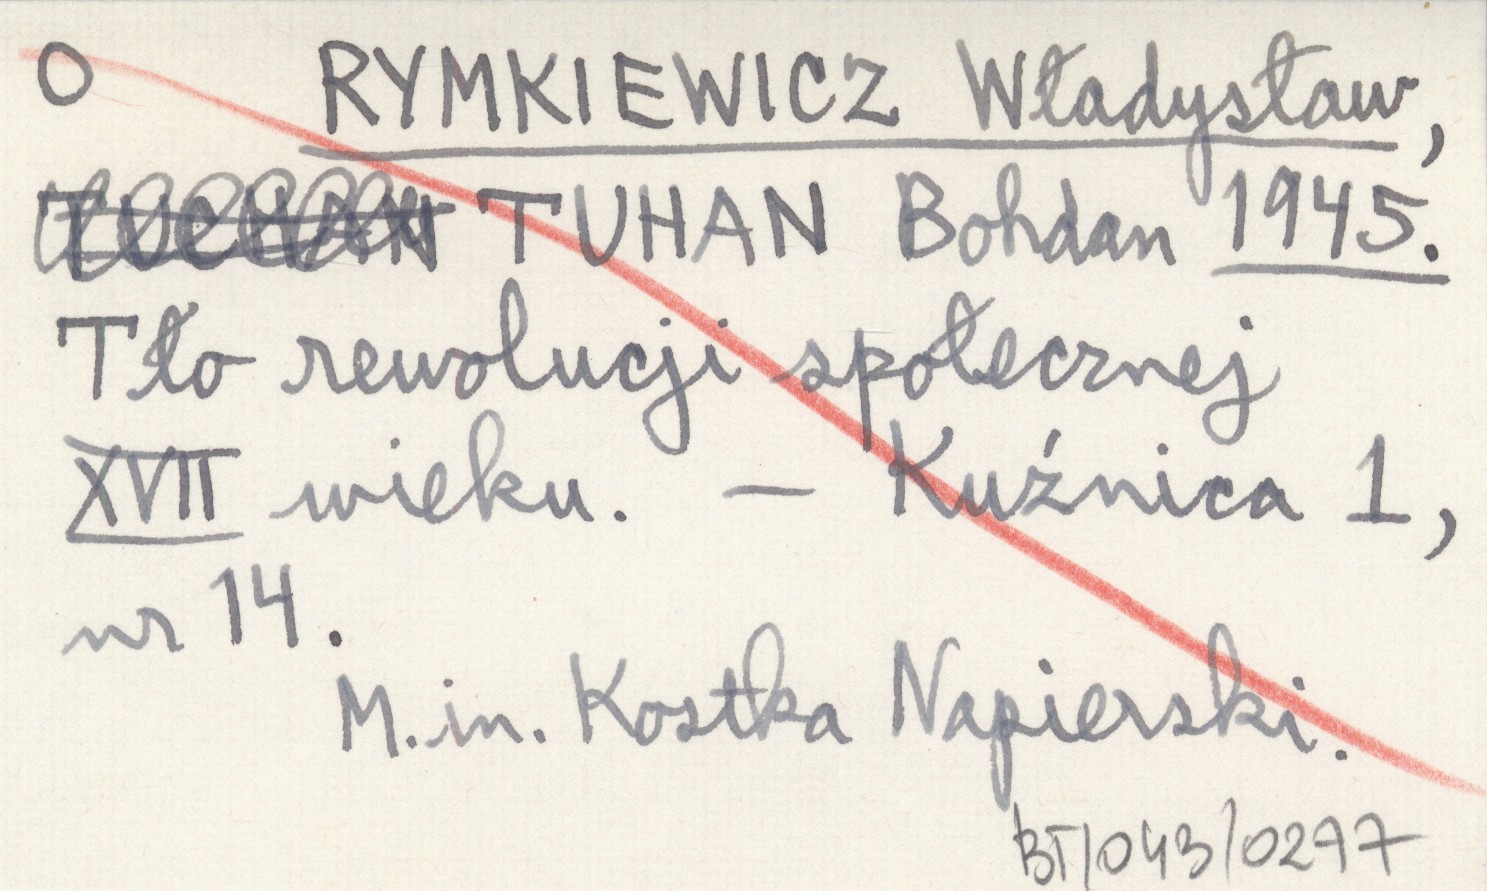 O RYMKIEWICZ Władysław,
TUCHAN TUHAN Bohdan 1945.
Tło rewolucji społecznej
XVII wieku. – Kuźnica 1,
nr 14.
M.in. Kostka Napierski.
BT/043/0297